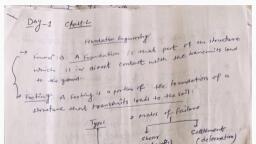 Day-1
Foundation Engineering
Found": A Foundation is that part of the structure
which is in direct contact with the
to the ground.
Footing: A footing is a portion of the foundation of a
structure that transmits loads to the soil:
Types Modes of Failure
Shear Settlement
(deformation)